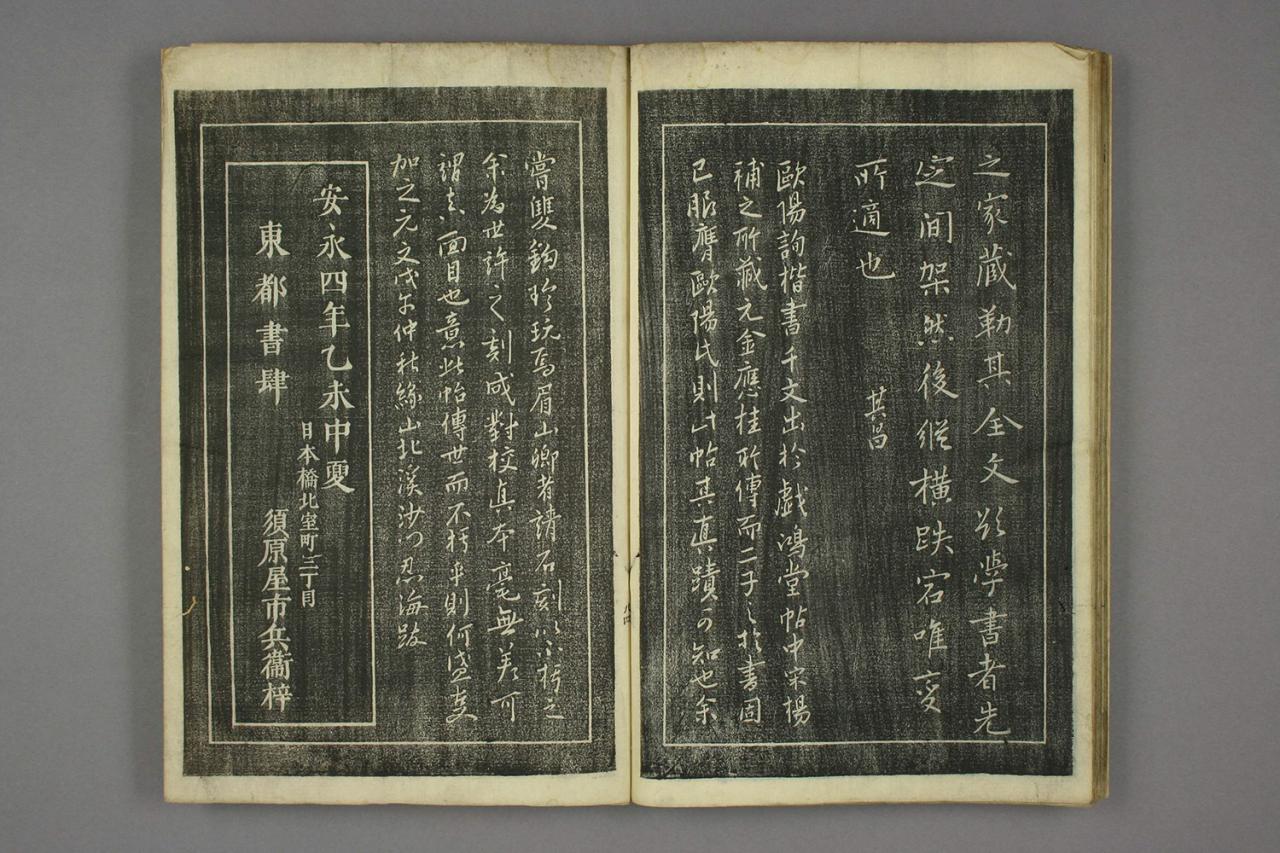 之家藏勒其全文欲學書者先
定间架然後縱横跌宕唯变
所適也
其昌
歐陽詢楷書千文出於戲鴻堂帖中宋楊
補之所藏元金應桂所傳而二子之於書固
已服膺歐陽氏則此帖其真蹟可知也余
嘗雙鈎珍玩焉眉山卿者請石刻以不朽之
余為世許之刻成對校真本毫無差可
謂真面目也意此帖傳世而不朽乎則何盛事
加之元文戊午仲秋絲山北溪沙门忍海跋
安永四年乙未中夏
日本橋北室町三丁目
東都書肆
須原屋市兵衞梓